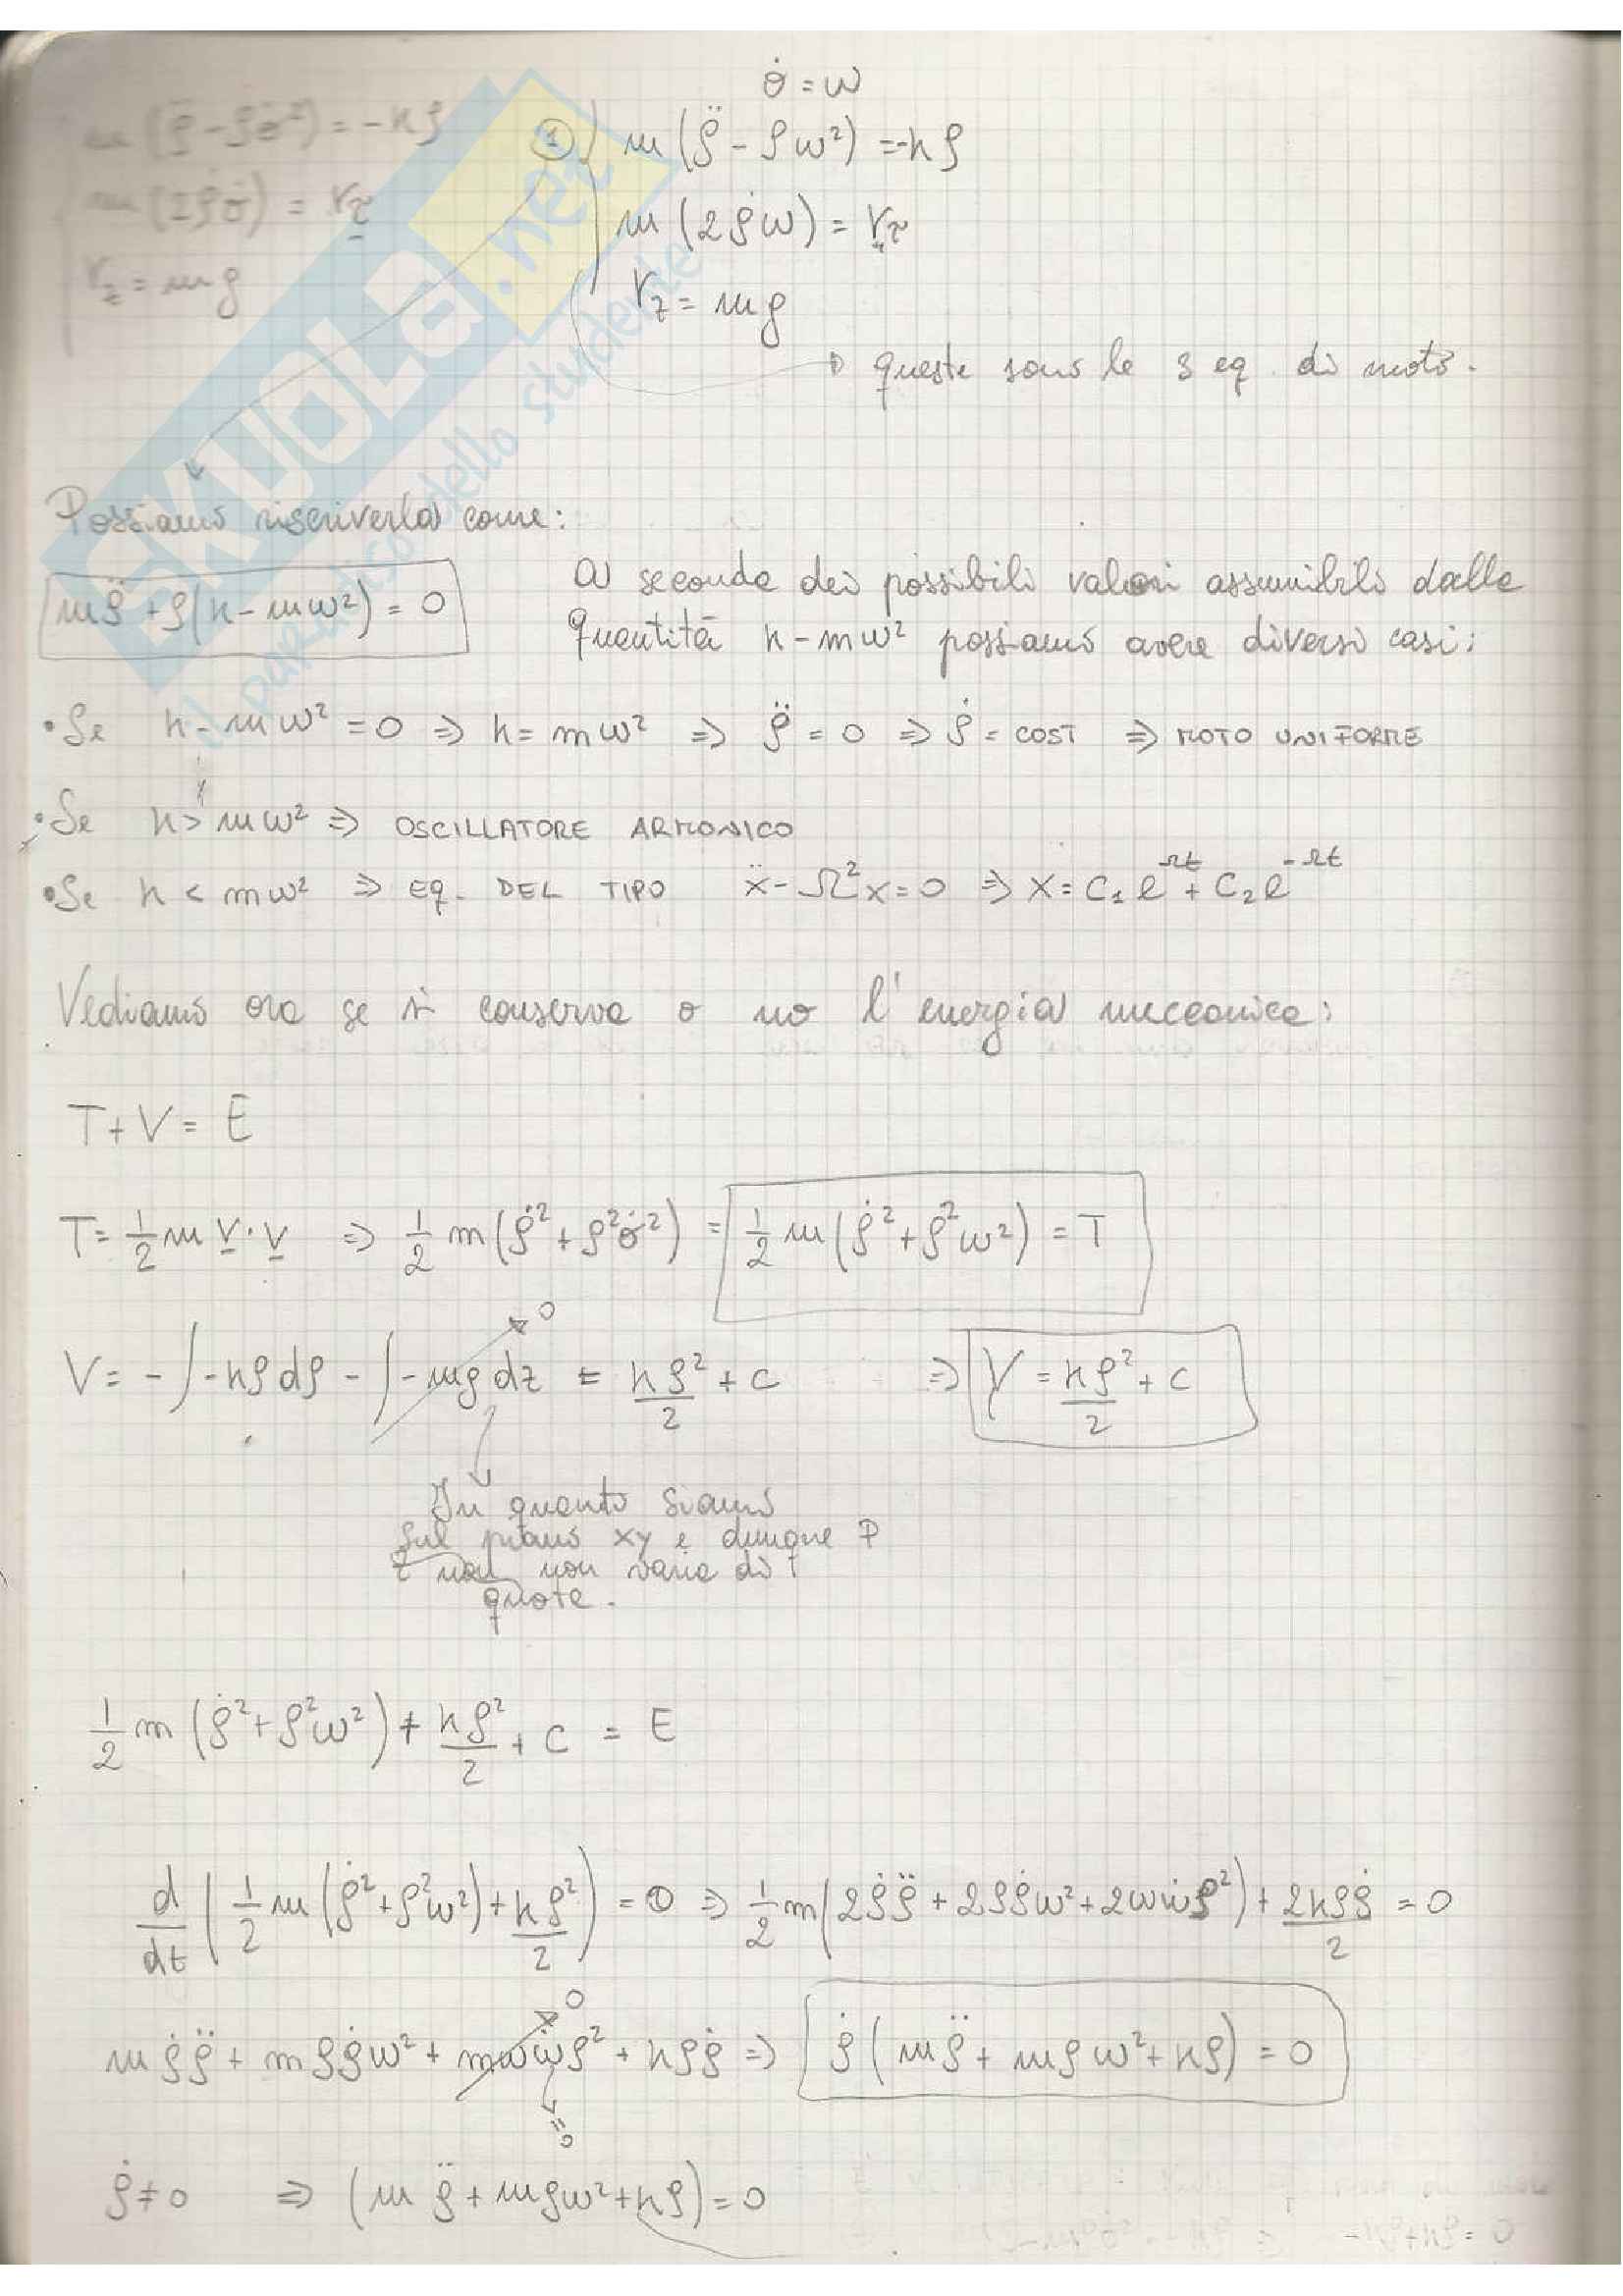 θ̇ = ω
m(ρ̈ - ρθ̇²) = -kρ
m(2ρ̇θ̇) = r_τ
r_z = mg
① m(ρ̈ - ρω²) = -kρ
m(2ρ̇ω) = r_τ
r_z = mg
→ queste sono le 3 eq. di moto.
Possiamo riscriverla come:
mρ̈ + ρ(k - mω²) = 0
A seconda dei possibili valori assumibili dalla
quantità k - mω² possiamo avere diversi casi:
• Se k - mω² = 0 ⇒ k = mω² ⇒ ρ̈ = 0 ⇒ ρ̇ = COST ⇒ MOTO UNIFORME
• Se k > mω² ⇒ OSCILLATORE ARMONICO
• Se k < mω² ⇒ EQ. DEL TIPO ẍ - Ω²x = 0 ⇒ x = C₁e^Ωt + C₂e^-Ωt
Vediamo ora se si conserva o no l'energia meccanica:
T + V = E
T = 1/2 m v · v ⇒ 1/2 m(ρ̇² + ρ²θ̇²) = 1/2 m(ρ̇² + ρ²ω²) = T
V = - ∫ -kρdρ - ∫ -mgdz → 0 = kρ²/2 + c ⇒ V = kρ²/2 + c
In quanto siamo
sul piano xy e dunque P
non varia di
quota.
1/2 m(ρ̇² + ρ²ω²) + kρ²/2 + c = E
d/dt (1/2 m(ρ̇² + ρ²ω²) + kρ²/2) = 0 ⇒ 1/2 m(2ρ̇ρ̈ + 2ρρ̇ω² + 2ωω̇ρ²) + 2kρρ̇/2 = 0
mρ̇ρ̈ + mρρ̇ω² + mωω̇ρ² → 0 + kρρ̇ ⇒ ρ̇(mρ̈ + mρω² + kρ) = 0
= 0
ρ̇ ≠ 0 ⇒ (mρ̈ + mρω² + kρ) = 0
SKUOLA.net
il paradiso dello studente